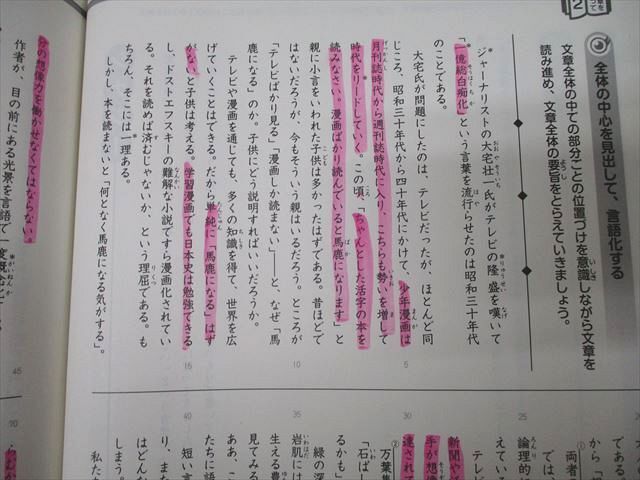 全体の中心を見出して、言語化する
文章全体の中での部分ごとの位置づけを意識しながら文章を
読み進め、文章全体の要旨をとらえていきましょう。
ジャーナリストの大宅壮一氏がテレビの隆盛を嘆いて
「一億総白痴化」という言葉を流行らせたのは昭和三十年代
のことである。
大宅氏が問題にしたのは、テレビだったが、ほとんど同
じころ、昭和三十年代から四十年代にかけて、少年漫画は
月刊誌時代から週刊誌時代に入り、こちらも勢いを増して
時代をリードしていく。この頃、「ちゃんとした活字の本を
読みなさい。漫画ばかり読んでいると馬鹿になります」と
親に小言をいわれた子供は多かったはずである。昔ほどで
はないだろうが、今もそういう親はいるだろう。ところが
「テレビばかり見る」「漫画しか読まない」――と、なぜ「馬
鹿になる」のか。子供にどう説明すればいいだろうか。
テレビや漫画を通じても、多くの知識を得て、世界を広
げていくことはできる。だから単純に「馬鹿になる」はず
がないと子供は考える。学習漫画でも日本史は勉強できる
し、ドストエフスキーの難解な小説ですら漫画化されてい
る。それを読めば済むじゃないか、という理屈である。も
ちろん、そこには一理ある。
しかし、本を読まないと「何となく馬鹿になる気がする」。
分の想像力を働かせなくてはならない。
作者が、目の前にある光景を言語で一
5
10
15
25
30
35
40
45
90
両者の
では、
論理的に
えている
テレビ
新聞や
手が想像
達されて
万葉集
「石ばし
るかも」
緑の深
岩肌に
生える
見てみる
ああ、
たちに
短い言
り、また
はどんな
しまう。
私たち